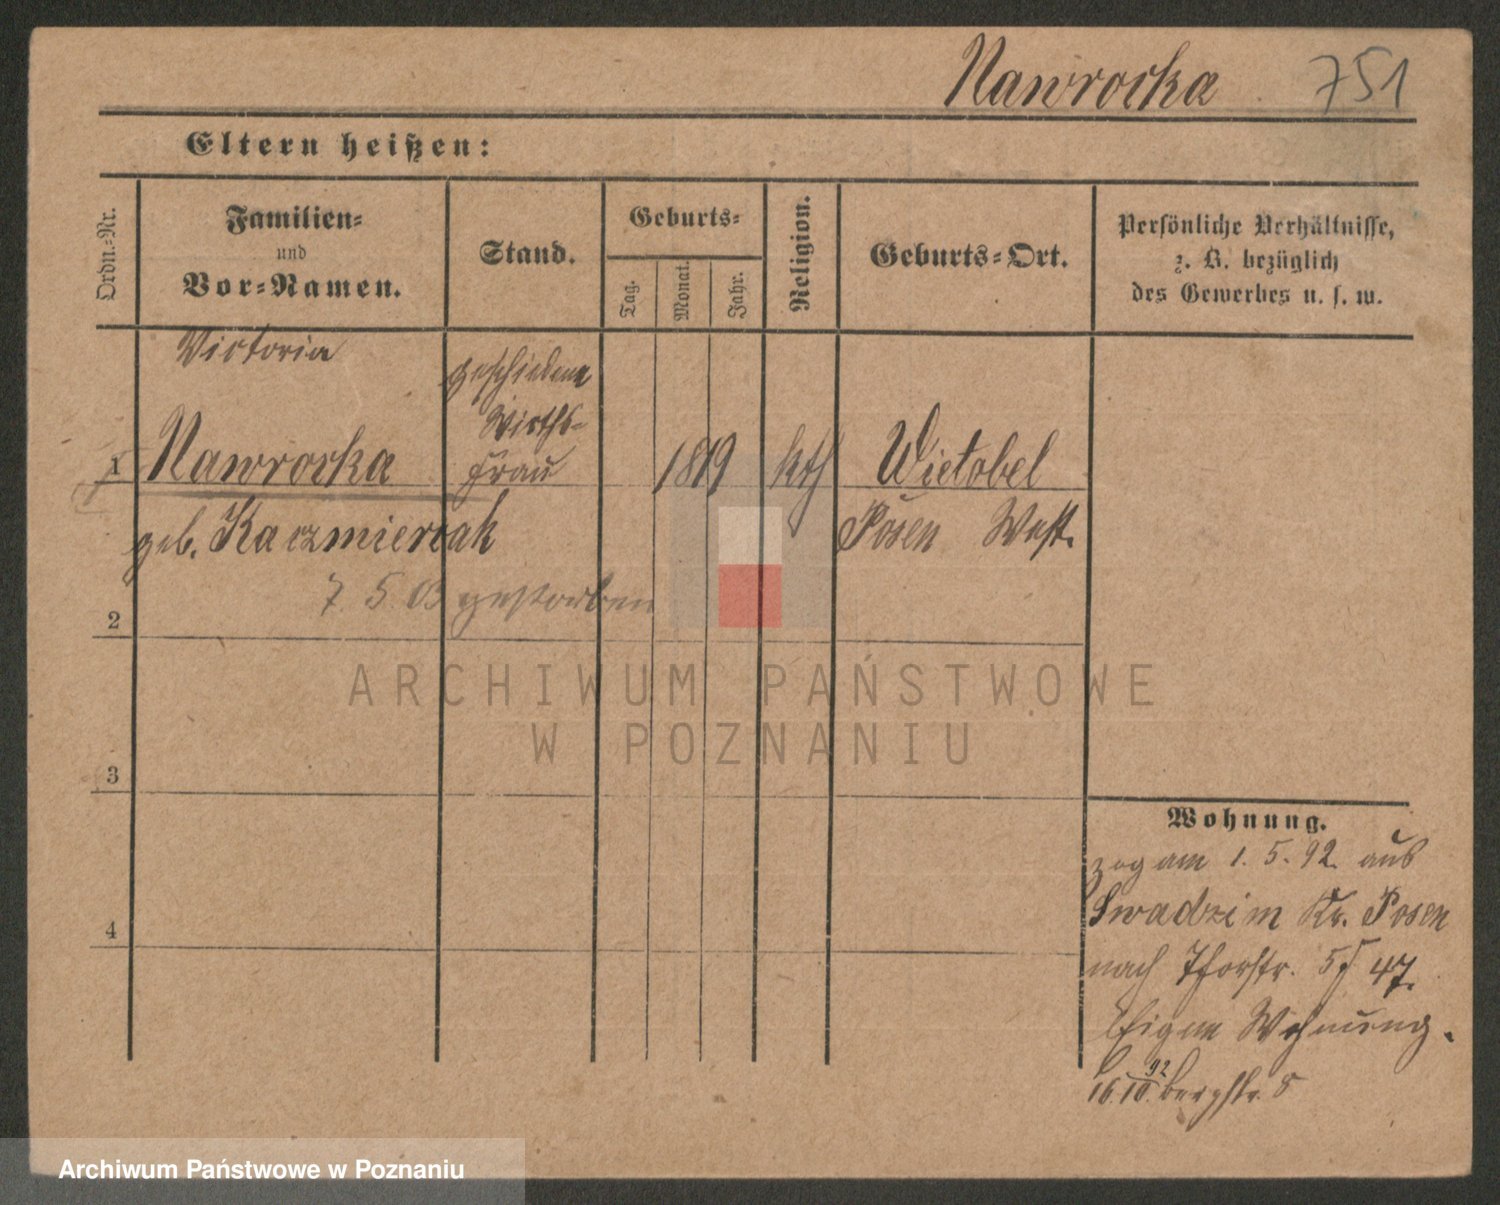 Nawrocka 751
Eltern heißen:
Ordn.-Nr.
Familien-
und
Vor-Namen.
Stand.
Geburts-
Tag.
Monat.
Jahr.
Religion.
Geburts-Ort.
Persönliche Verhältnisse,
z. B. bezüglich
des Gewerbes u. s. w.
Victoria
geschiedene
Wirths-
1 Nawrocka frau 1819 kth Wielobel
geb. Kaczmierczak Posen West.
7. 5. 03 gestorben
2
3
4
Wohnung.
zog am 1. 5. 92. aus
Swadzim Kr. Posen
nach Thorstr. 47.
Eigene Wohnung.
16.10.92 Bergstr. 8
ARCHIWUM PAŃSTWOWE
W POZNANIU
Archiwum Państwowe w Poznaniu